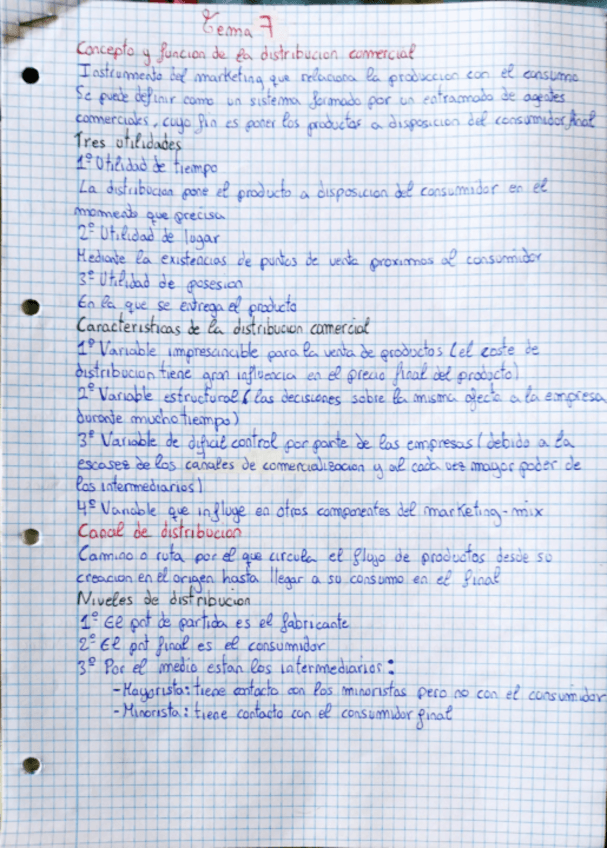 Tema 7
Concepto y funcion de la distribucion comercial
Instrumento del marketing que relaciona la produccion con el consumo
Se puede definir como un sistema formado por un entramado de agentes
comerciales, cuyo fin es poner los productos a disposicion del consumidor final
Tres utilidades
1º Utilidad de tiempo
La distribucion pone el producto a disposicion del consumidor en el
momento que precisa
2º Utilidad de lugar
Mediante la existencias de puntos de venta proximos al consumidor
3º Utilidad de posesion
En la que se entrega el producto
Caracteristicas de la distribucion comercial
1º Variable imprescincible para la venta de productos (el coste de
distribucion tiene gran influencia en el precio final del producto)
2º Variable estructural (las decisiones sobre la misma afecta a la empresa
durante mucho tiempo)
3º Variable de dificil control por parte de las empresas (debido a la
escases de los canales de comercializacion y al cada vez mayor poder de
los intermediarios)
4º Variable que influye en otros componentes del marketing-mix
Canal de distribucion
Camino o ruta por el que circula el flujo de productos desde su
creacion en el origen hasta llegar a su consumo en el final
Niveles de distribucion
1º El pnt de partida es el fabricante
2º El pnt final es el consumidor
3º Por el medio estan los intermediarios:
-Mayorista: tiene contacto con los minoristas pero no con el consumidor
-Minorista: tiene contacto con el consumidor final